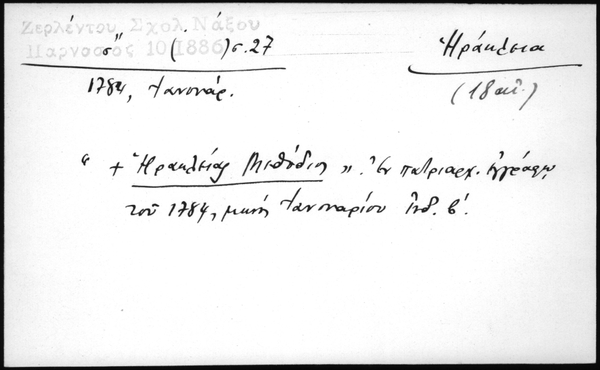 Ζερλέντου, Σχολ. Νάξου
Παρνασσός 10(1886)
" ( " )σ. 27
Ἡράκλεια
1784, Ἰανουάρ.
(18 αἰ.)
" + Ἡρακλείας Μεθόδιος ". Ἐν πατριαρχ. ἐγγράφῳ
τοῦ 1784, μηνὶ Ἰανουαρίου Ἰνδ. β'.